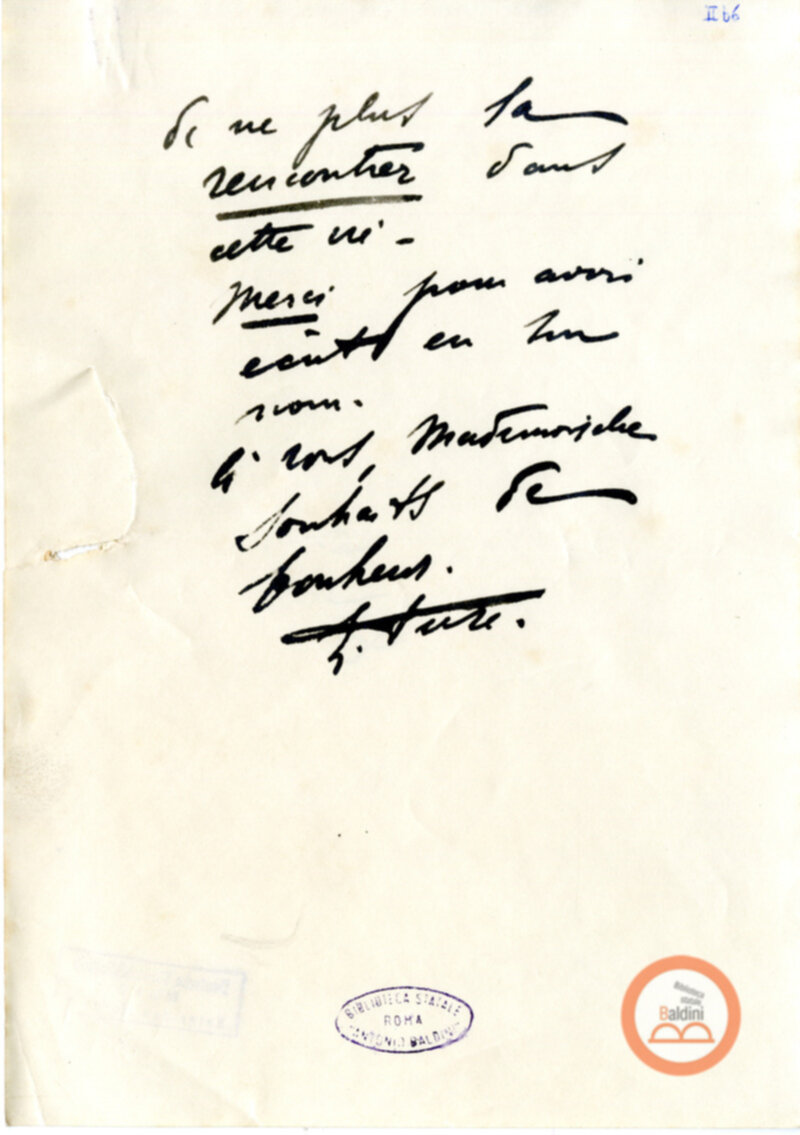 II b6
de ne plus la
rencontrer dans
cette vie -
Merci pour avoir
écrit en son
nom.
à vous, Mademoiselle
souhaits de
bonheur.
E. Duse.
BIBLIOTECA STATALE
ROMA
"ANTONIO BALDINI"
Biblioteca
statale
Baldini